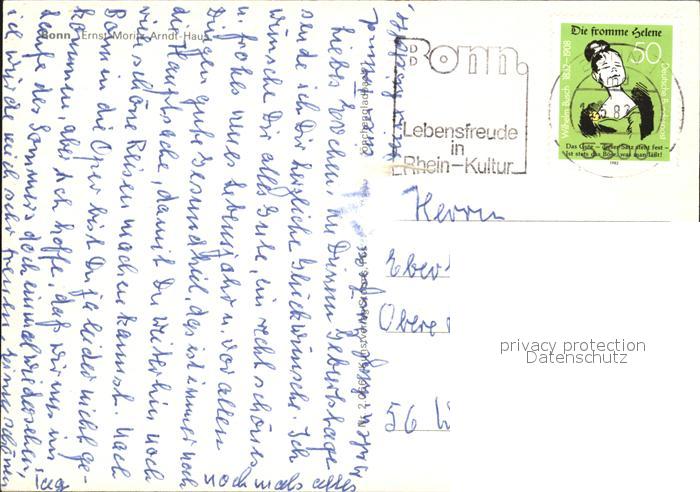 Bonn, Ernst-Moritz-Arndt-Haus
Bonn.
Lebensfreude
in
Rhein-Kultur
Die fromme Helene
50
Wilhelm Busch 1832-1908
Deutsche Bundespost
Das Gute – dieser Satz steht fest –
Ist stets das Böse, was man läßt!
1982
Herrn
Eber
Obere
56
privacy protection
Datenschutz
Lieber
zu Deinem Geburtstage
sende ich Dir herzliche Glückwünsche. Ich
wünsche Dir alles Gute, ein recht schönes
u. frohes neues Lebensjahr u. vor allen
Dingen gute Gesundheit, das ist immer noch
die Hauptsache, damit Du weiterhin noch
viele schöne Reisen machen kannst. Nach
Bonn in die Oper bist Du ja leider nicht ge-
kommen, aber ich hoffe, daß wir uns im
Laufe des Sommers doch einmal wiedersehen,
ich würde mich sehr freuen.
nochmals alles